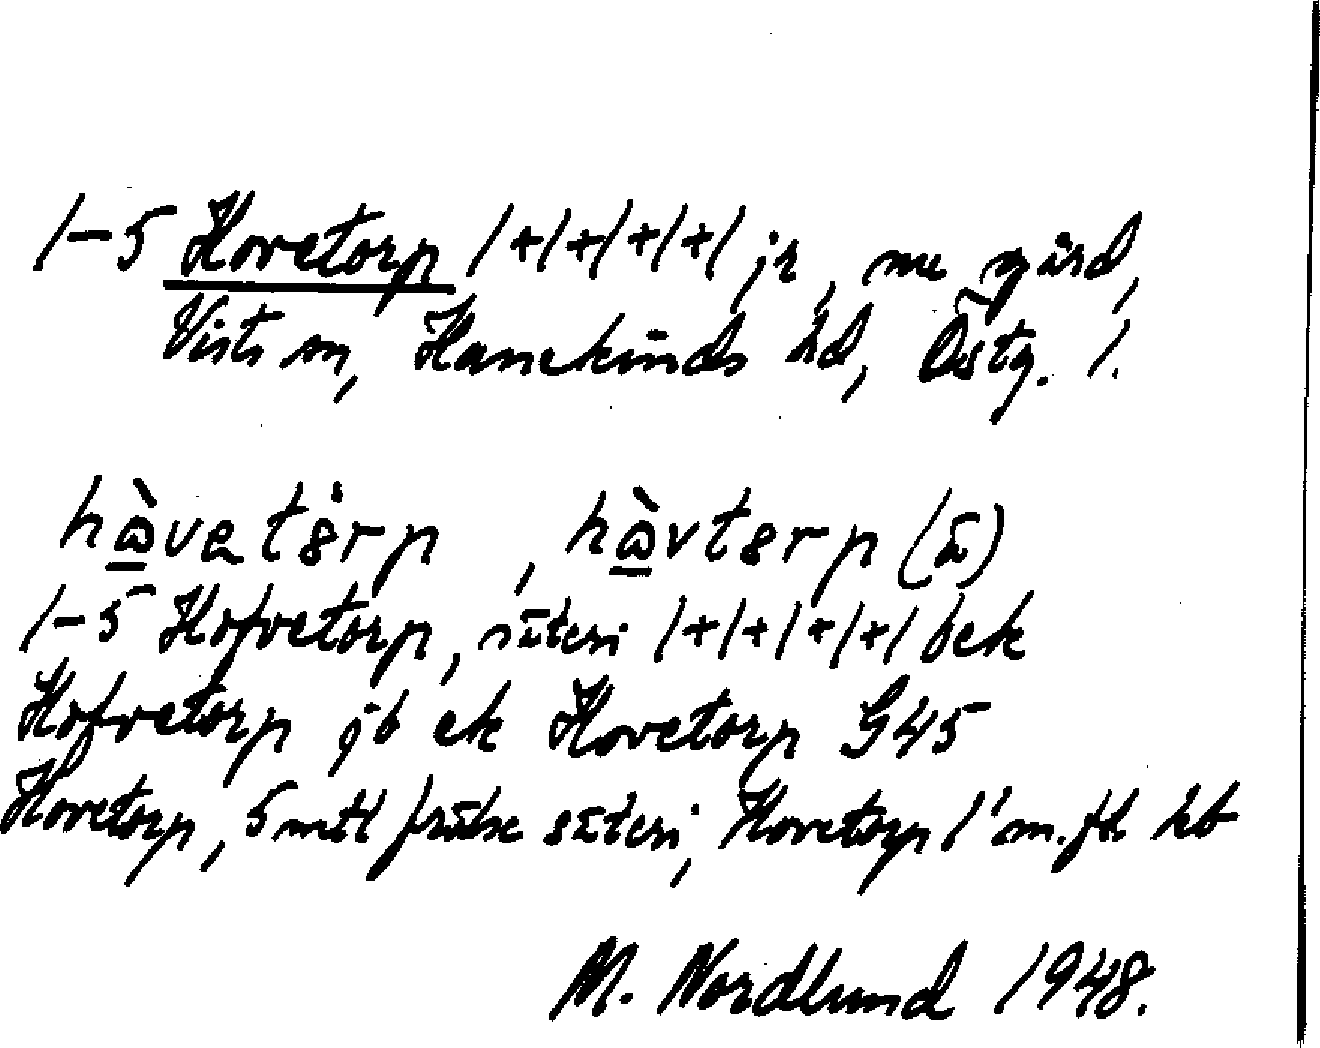 1-5 Hovetorp 1+1+1+1+1 jr, me gård,
Vists sn, Hanekinds hd, Östg. l.
hàvetèrp, hàvterp (ā)
1-5 Hofvetorp, säteri 1+1+1+1+1 bek
Hofvetorp jb ek Hovetorp G45
Hovetorp, 5 mtl frälse säteri, Hovetorp 1' m. fl. hb
M. Nordlund 1948.